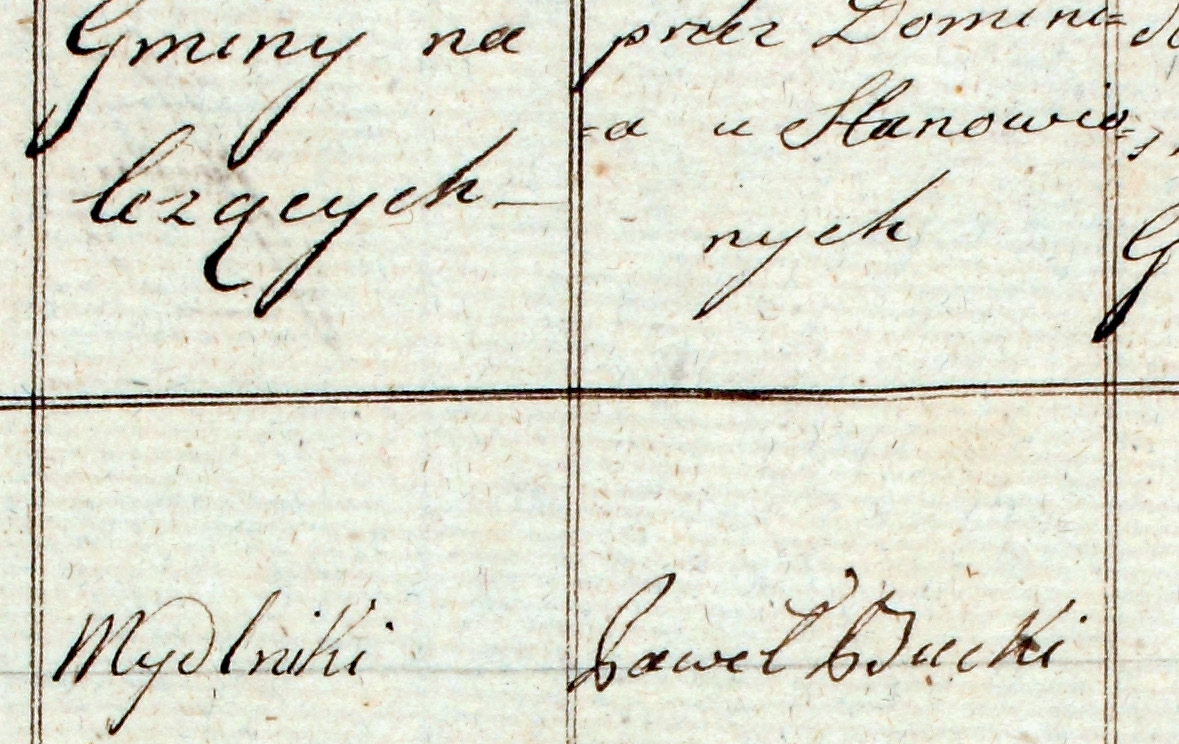 Gminy na
leżących
przez Domini=
=a u Stanowio=
nych
G
Mydlniki
Paweł Bucki